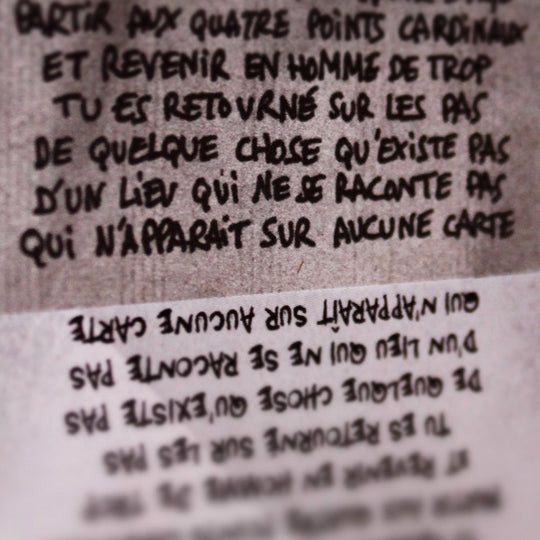 PARTIR AUX QUATRE POINTS CARDINAUX
ET REVENIR EN HOMME DE TROP
TU ES RETOURNÉ SUR LES PAS
DE QUELQUE CHOSE QU'EXISTE PAS
D'UN LIEU QUI NE SE RACONTE PAS
QUI N'APPARAIT SUR AUCUNE CARTE
ET REVENIR EN HOMME DE TROP
TU ES RETOURNÉ SUR LES PAS
DE QUELQUE CHOSE QU'EXISTE PAS
D'UN LIEU QUI NE SE RACONTE PAS
QUI N'APPARAÎT SUR AUCUNE CARTE